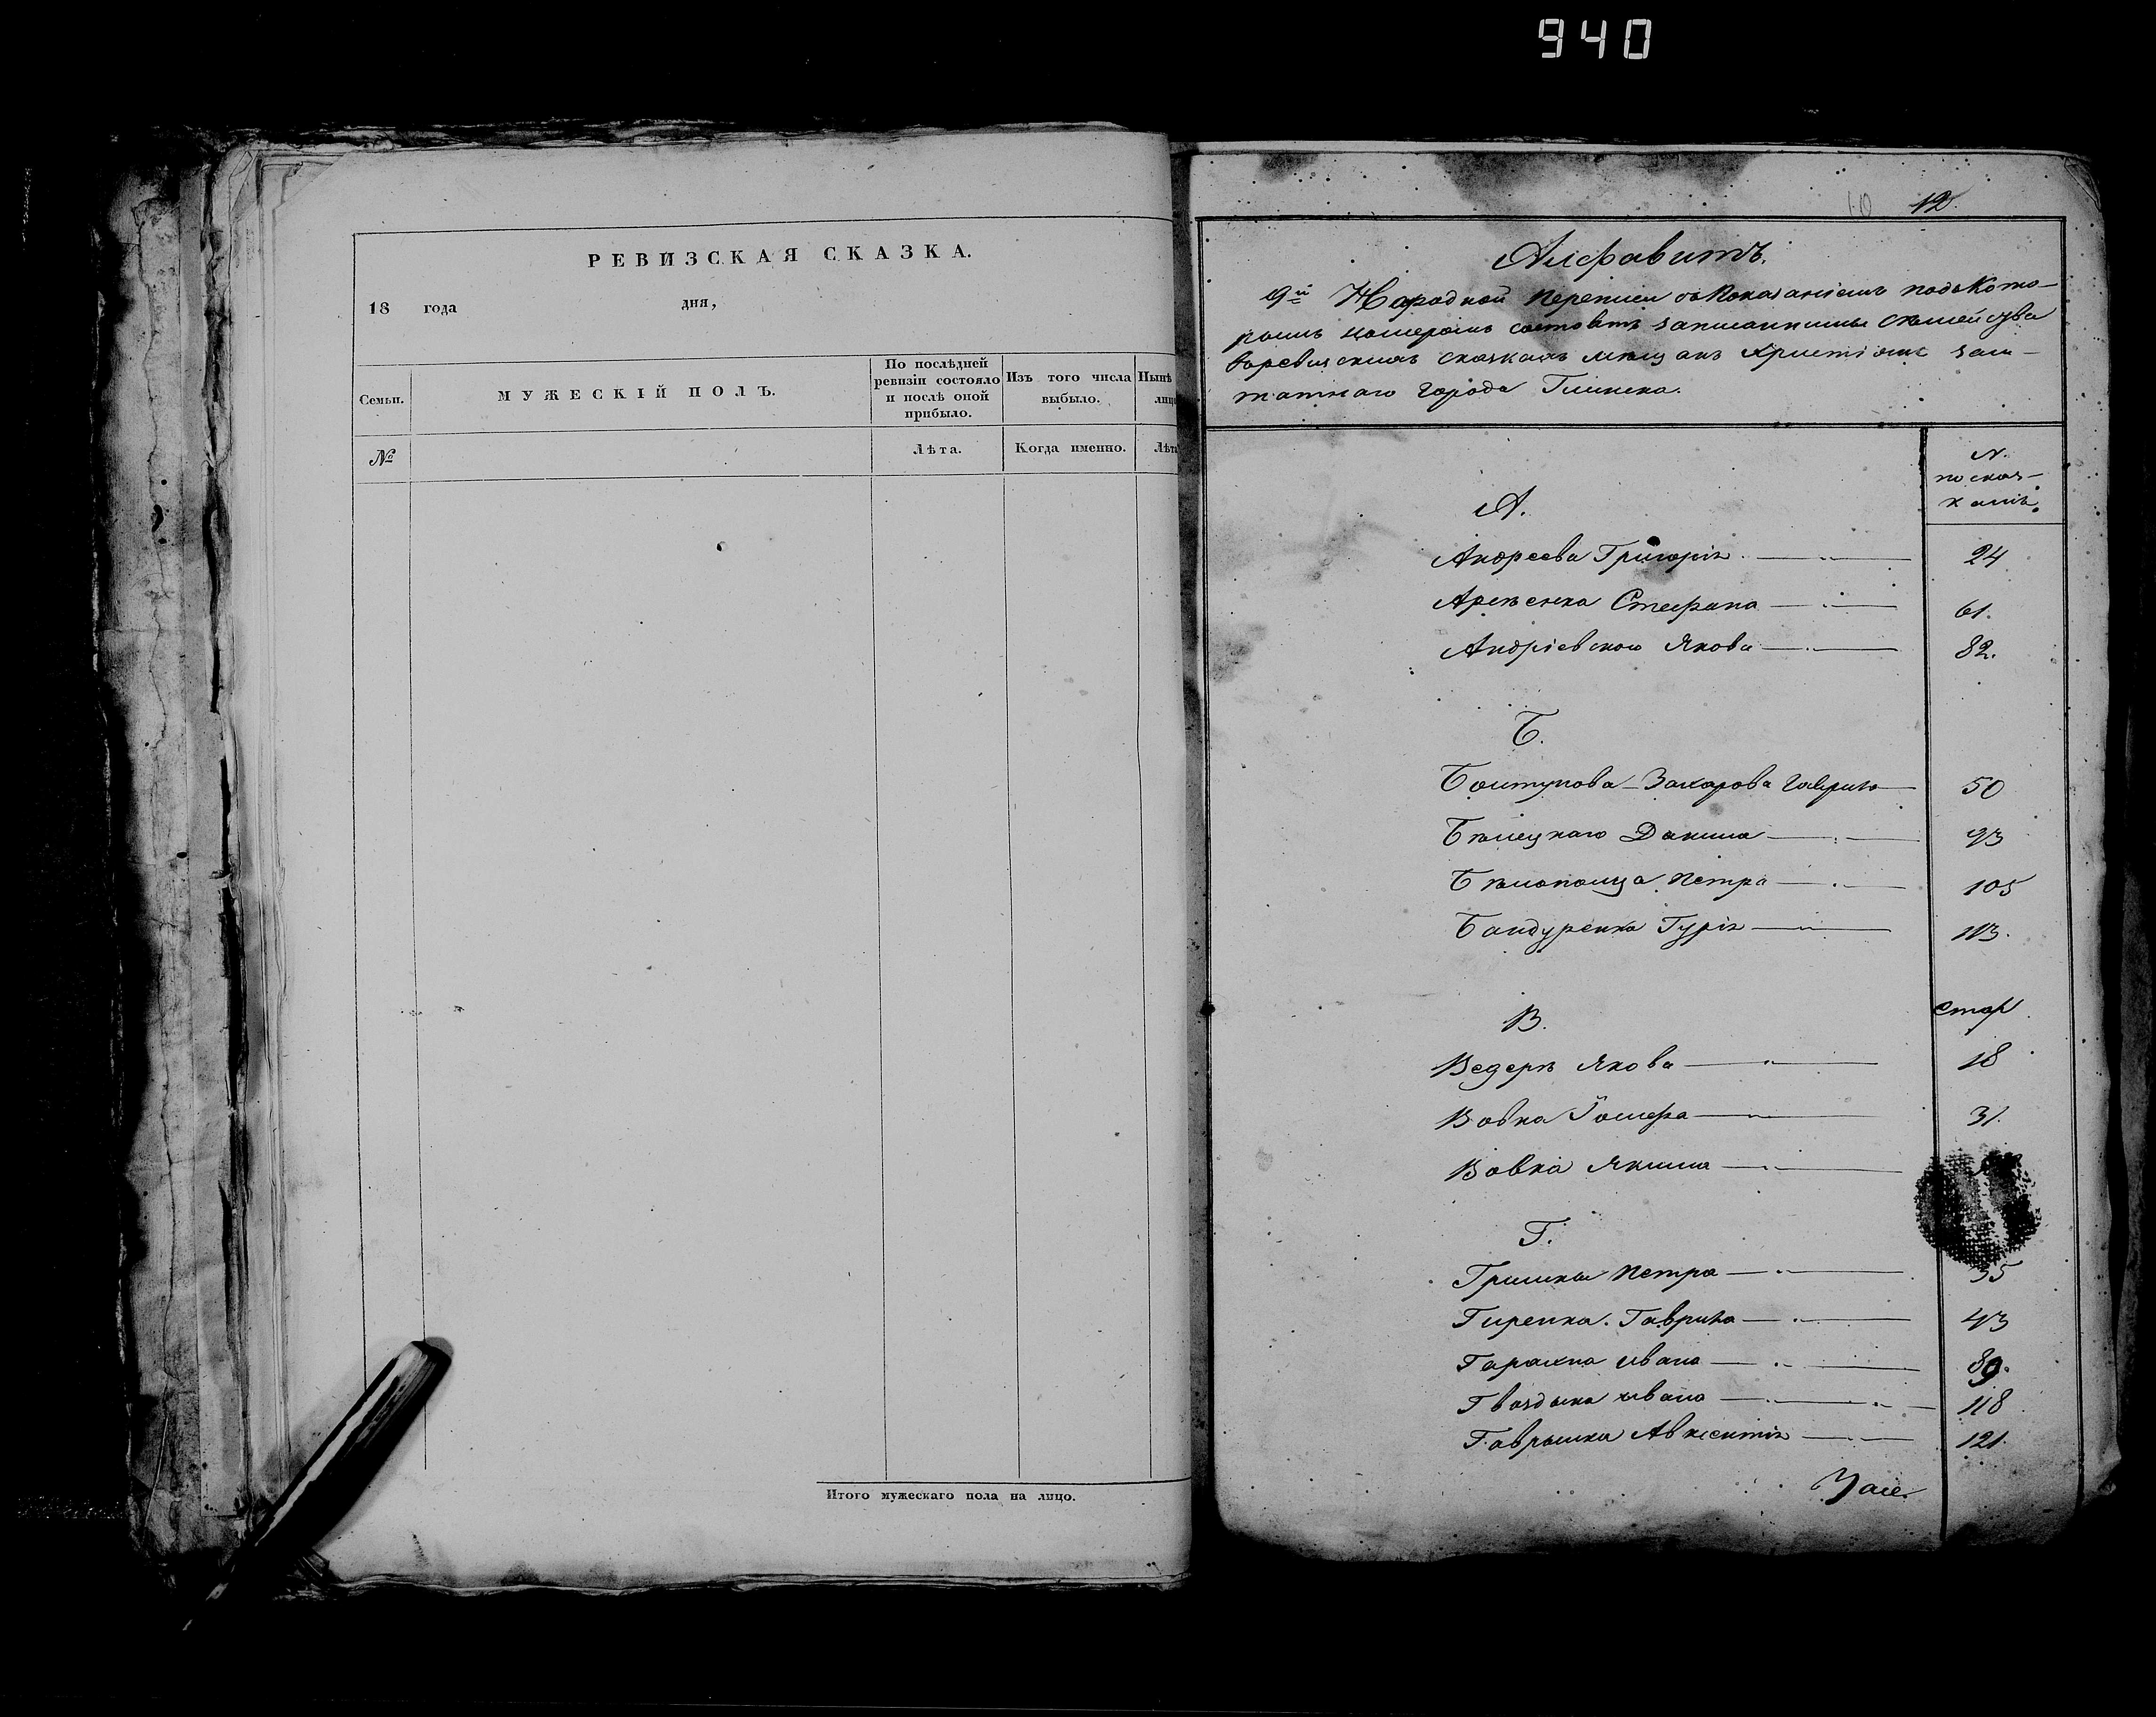 940
РЕВИЗСКАЯ СКАЗКА.
18 года дня,
Семьи.
МУЖЕСКІЙ ПОЛЪ.
По послѣдней
ревизіи состояло
и послѣ оной
прибыло.
Изъ того числа
выбыло.
Нынѣ
лицо
№
Лѣта.
Когда именно.
Лѣта
Итого мужескаго пола на лицо.
12.
Алфавитъ.
9й Народной переписи съ показаніемъ подъ кото-
рымъ номеромъ состоитъ записанныя семейства
въ ревизскихъ сказкахъ мещанъ христіянъ заш-
татнаго города Глинска.
N.
по сказ-
камъ.
А.
Андреева Григорія 24
Стефана 61.
Андріевского Якова 82.
Б.
Захарова Гаврила 50
Бѣлецкаго Данила 93
Петра 105
Бандуренка Гурія 113.
В.
стар
Ведеръ Якова 18
Вовка Іосифа 31.
Вовка Якима
Г.
Гришка Петра 35
Гиренка. Гаврила 43
Ивана 89.
Гваздика Ивана 118
Гаврышка Авксентія 121.